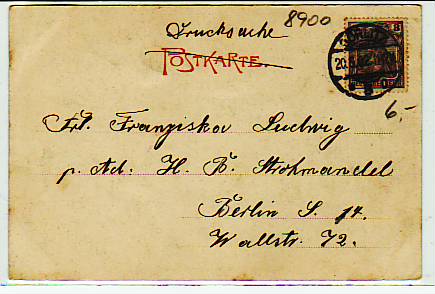 Drucksache
8900
POSTKARTE.
6,-
Frl. Franziska Ludwig
p. Ad. H. B. Strohmandel
Berlin S. 14.
Wallstr. 72.